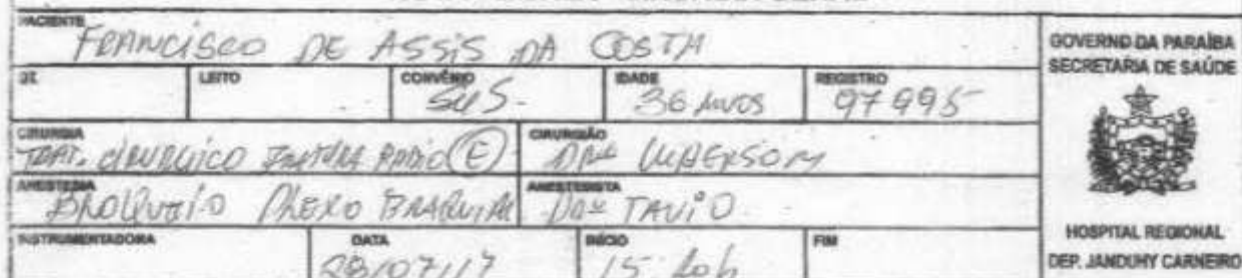 PACIENTE
FRANCISCO DE ASSIS DA COSTA
LEITO
CONVÊNIO
SUS
IDADE
36 ANOS
REGISTRO
97995
CIRURGIA
TRAT. CIRURGICO FRATURA RADIO (E)
CIRURGIÃO
ANESTESIA
BLOQUEIO PLEXO BRAQUIAL
ANESTESISTA
TAVIO
INSTRUMENTADORA
DATA
28/07/17
INÍCIO
15:
FIM
GOVERNO DA PARAÍBA
SECRETARIA DE SAÚDE
HOSPITAL REGIONAL
DEP. JANDUHY CARNEIRO